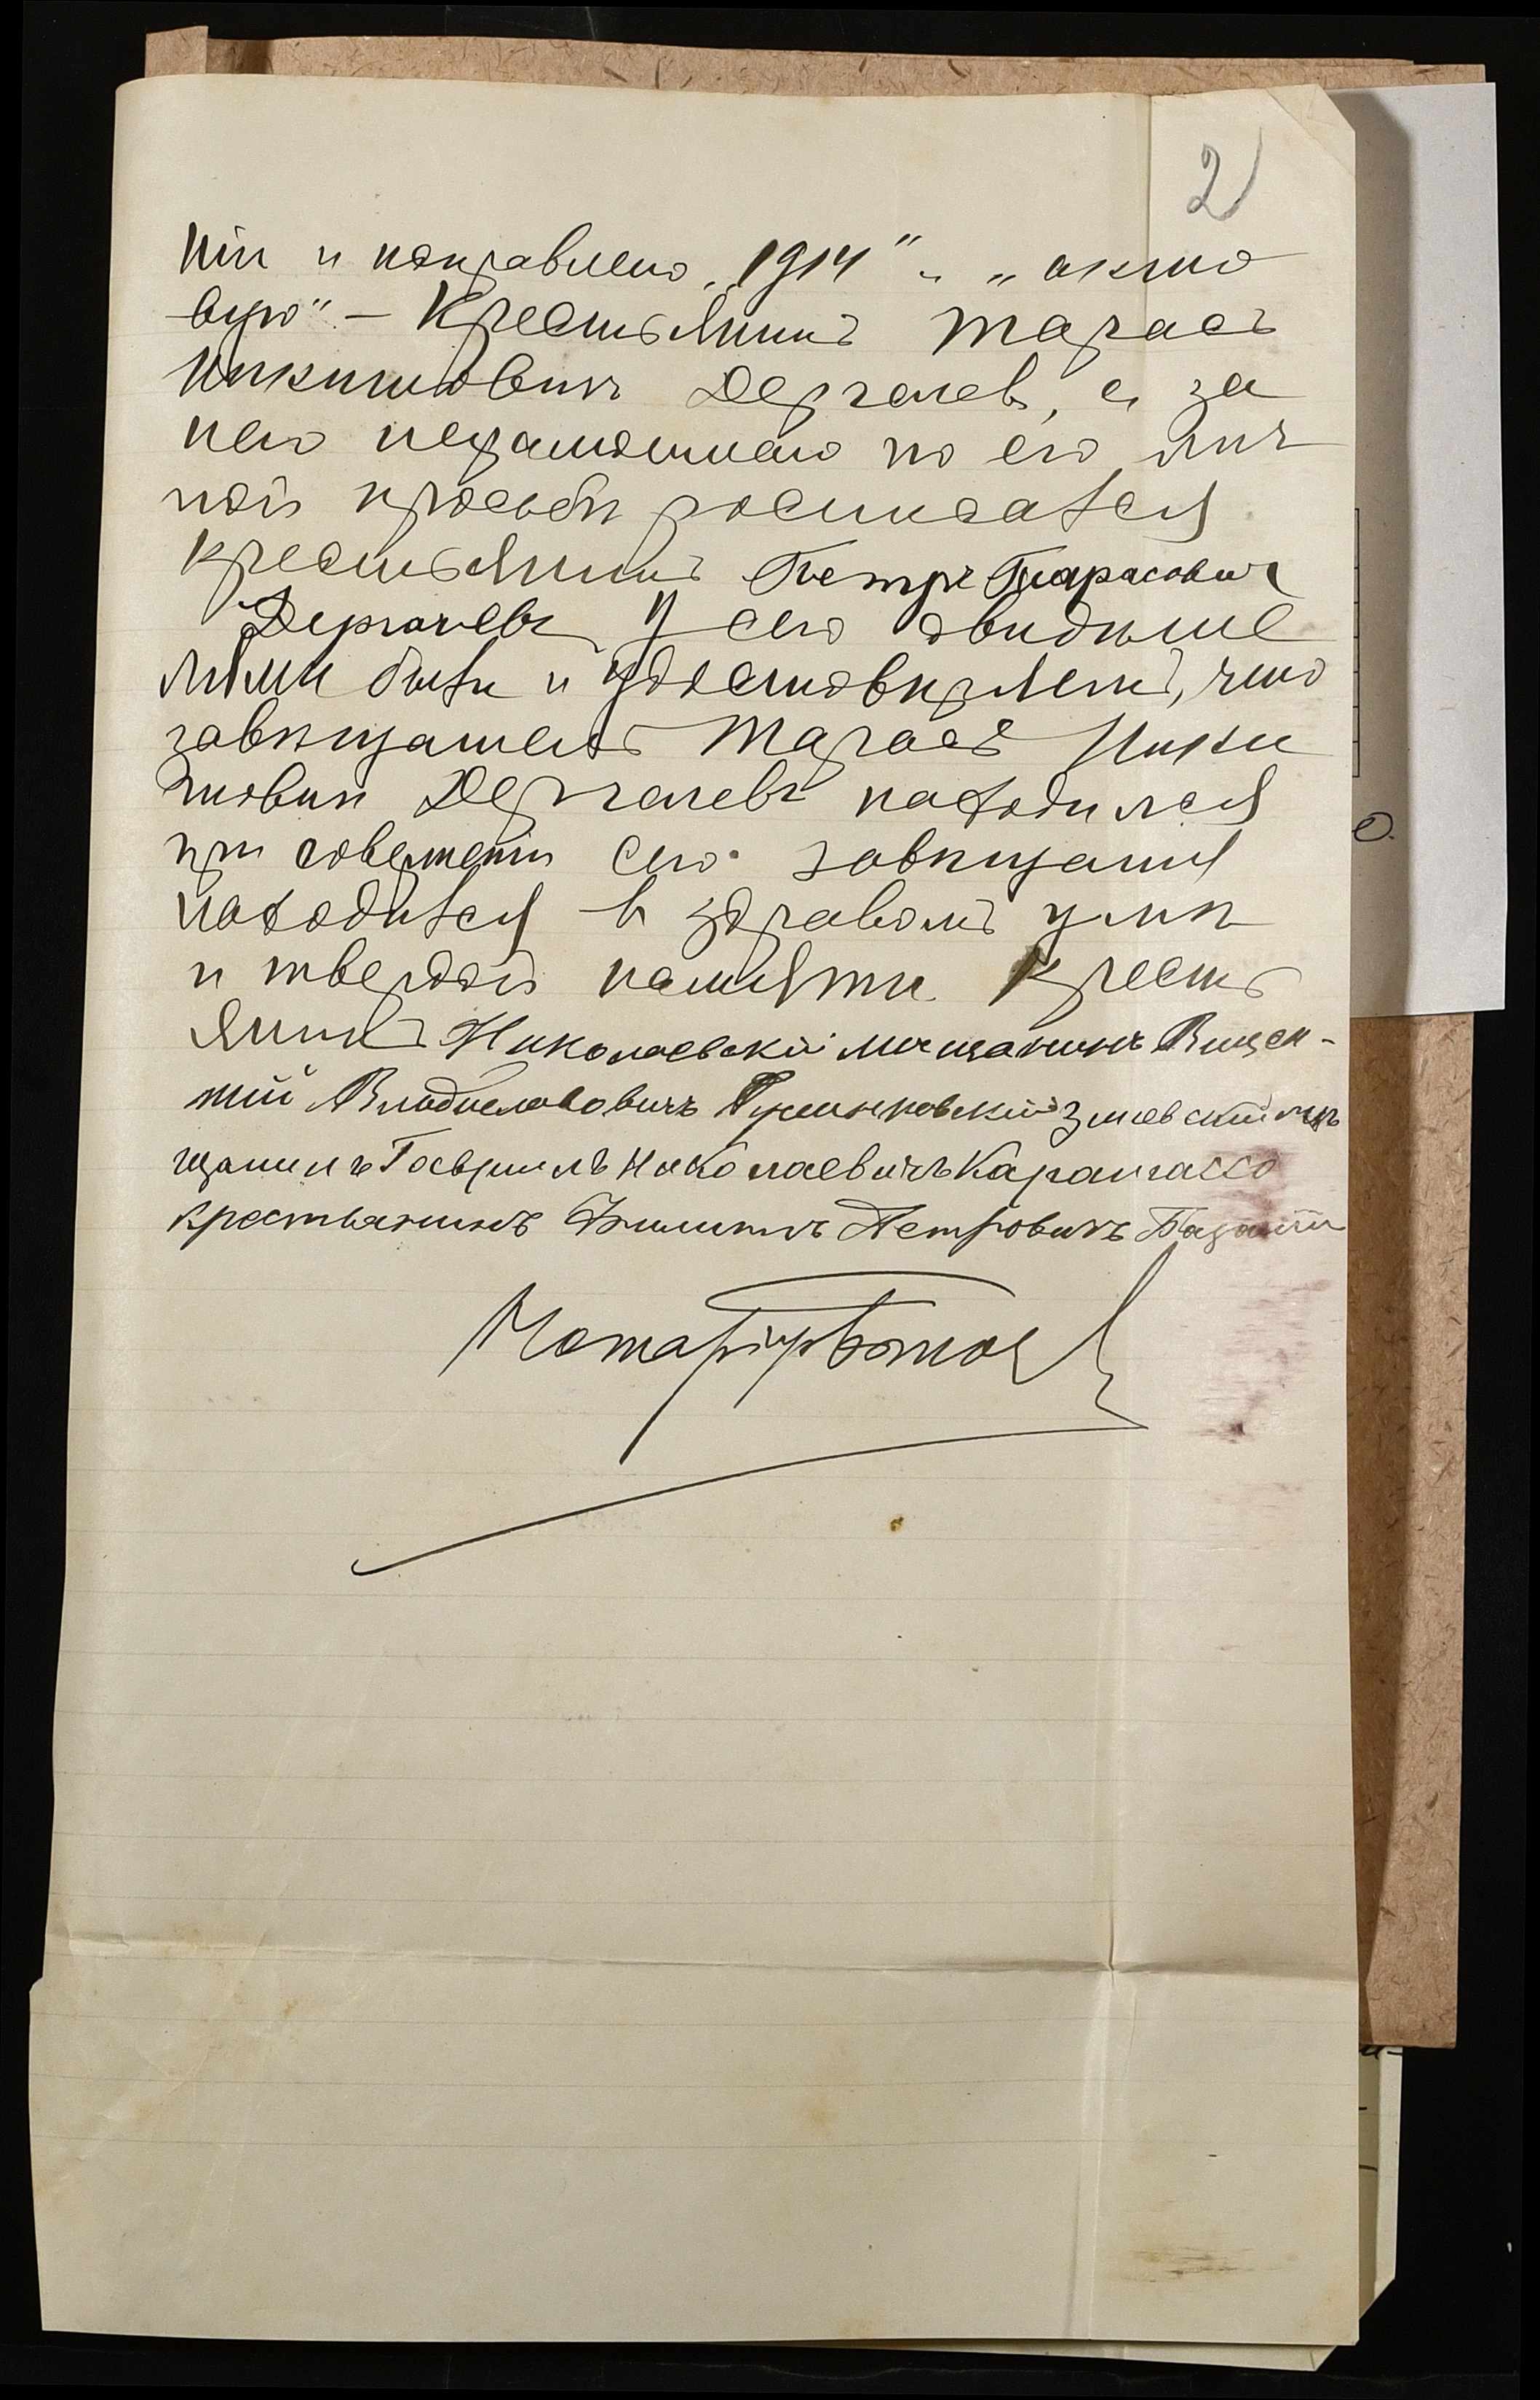 2
ніи и поправлено „1914" и „окто
вую" – Крестьянинъ Тарасъ
Никитовичъ Дергачевъ, а за
него неграмотнаго по его лич
ной просьбѣ росписался
крестьянинъ Петръ Тарасовичъ
Дергачевъ У сего свидѣте
лями были и удостовѣряемъ, что
завѣщатель Тарасъ Ники
товичъ Дергачевъ находился
при совершеніи сего завѣщанія
находился въ здравомъ умѣ
и твердой памяти Кресть
янинъ Николаевскій мѣщанинъ Вицен-
тій Владиславовичъ Змiевскiй мѣ
щанинъ Гавріилъ Николаевичъ
крестьянинъ Филиппъ Петровичъ
Нотаріусъ